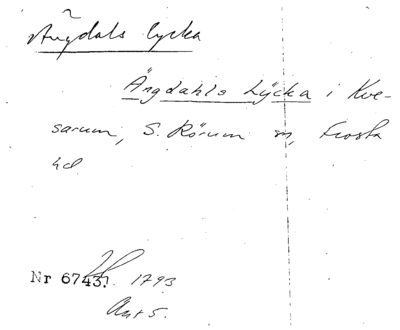 Ängdals lycka
Ängdahls Lycka i Kve-
sarum, S. Rörum sn, Frosta
hd
Nr 6743. 1793
Akt 5.